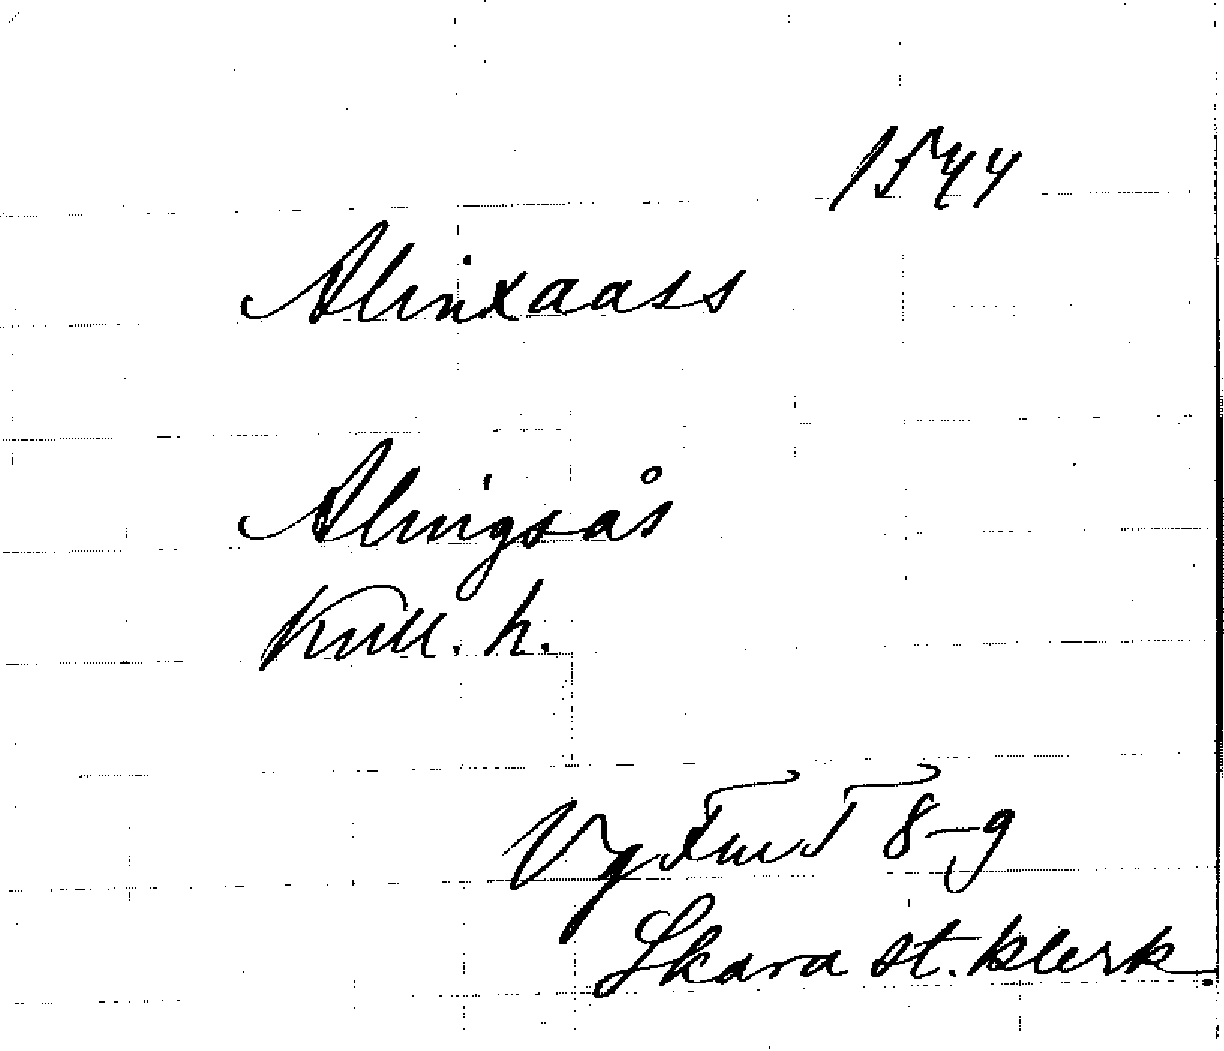 1544
Alinxaass
Alingsås
Kull. h.
Vg FmT 8-9
Skara st. klerk.